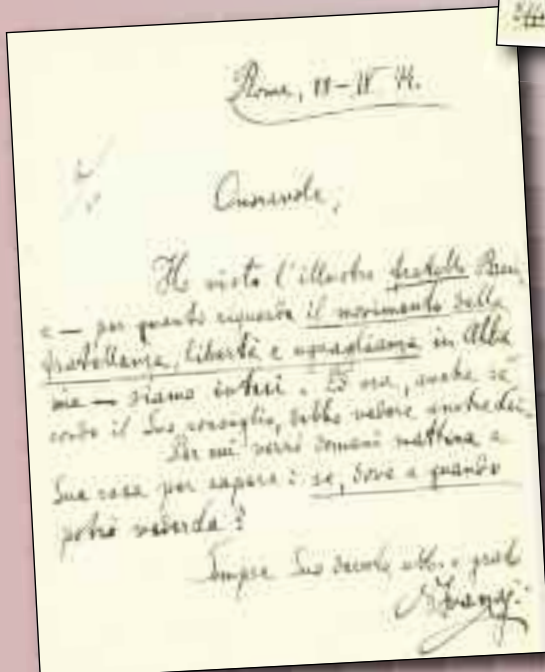 Roma, 11-IV 44.
Onorevole,
Ho visto l'illustre fratello
e — per quanto riguarda il movimento della
fratellanza, libertà e uguaglianza in Alba
nia — siamo intesi. Ed ora, anche se
condo il Suo consiglio, debbo vedere anche
Per cui verrò domani mattina a
Sua casa per sapere: se, dove e quando
potrò vederla?
Sempre Suo devoto, obb. e grato